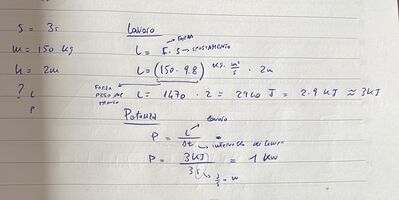 S = 3s
m = 150 kg
h = 2m
? L
P
Lavoro
FORZA
L = F · S → SPOSTAMENTO
L = (150 · 9.8) kg · m²/s · 2m
FORZA
PESO DEL
L = 1470 · 2 = 2940 J = 2.9 KJ ≈ 3KJ
Potenza
lavoro
P = L/Δt =
intervallo del
P = 3KJ/3s = 1 KW
J/s = W